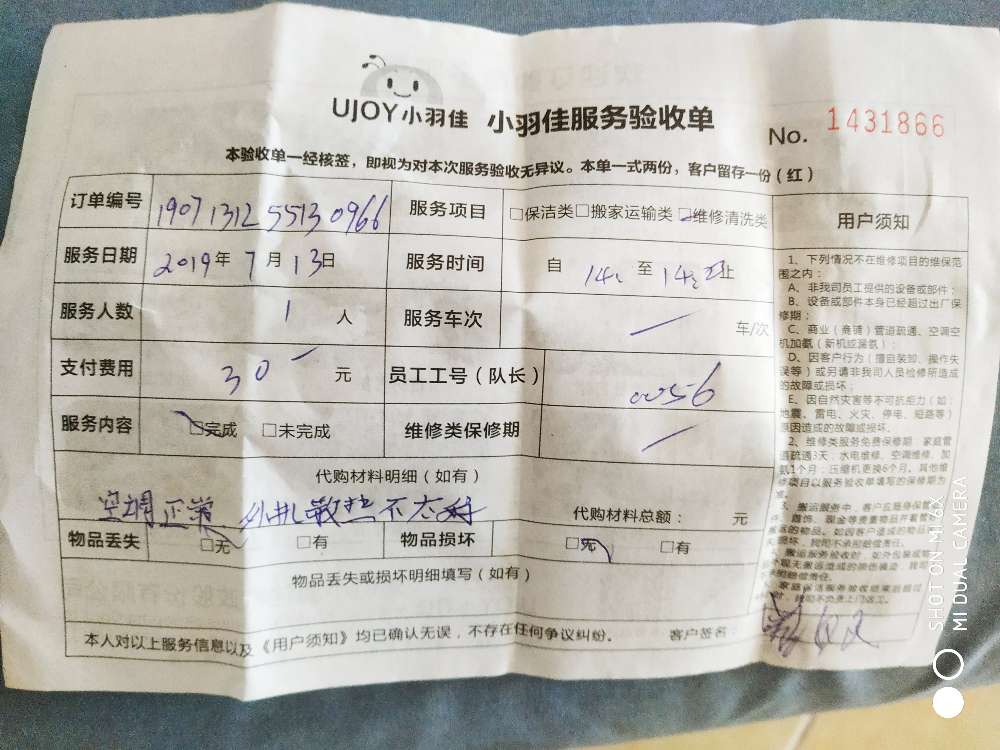 UJOY小羽佳 小羽佳服务验收单 No. 1431866
本验收单一经核签，即视为对本次服务验收无异议。本单一式两份，客户留存一份（红）
订单编号 190713125513 0966 服务项目 □保洁类□搬家运输类□维修清洗类
服务日期 2019年 7月 13日 服务时间 自 14 至 14 止
服务人数 1 人 服务车次 车/次
支付费用 30 元 员工工号（队长） 0056
服务内容 □完成 □未完成 维修类保修期
代购材料明细（如有）
空调正常 外机散热不太好 代购材料总额： 元
物品丢失 □无 □有 物品损坏 □无 □有
物品丢失或损坏明细填写（如有）
本人对以上服务信息以及《用户须知》均已确认无误，不存在任何争议纠纷。 客户签名：
用户须知
1、下列情况不在维修项目的维保范
围之内：
A、非我司员工提供的设备或部件；
B、设备或部件本身已经超过出厂保
修期；
C、商业（商铺）管道疏通、空调空
机加氨（新机或漏氨）；
D、因客户行为（擅自装卸、操作失
误等）或另请非我司人员检修所造成
的故障或损坏；
E、因自然灾害等不可抗拒力（如：
地震、雷电、火灾、停电、短路等）
原因造成的故障或损坏。
2、维修类服务免费保修期：家庭管
道疏通3天；水电维修、空调维修、加
氨1个月；压缩机更换6个月。其他维
修项目以服务验收单填写的保修期为
准。
SHOT ON MI 6X
MI DUAL CAMERA